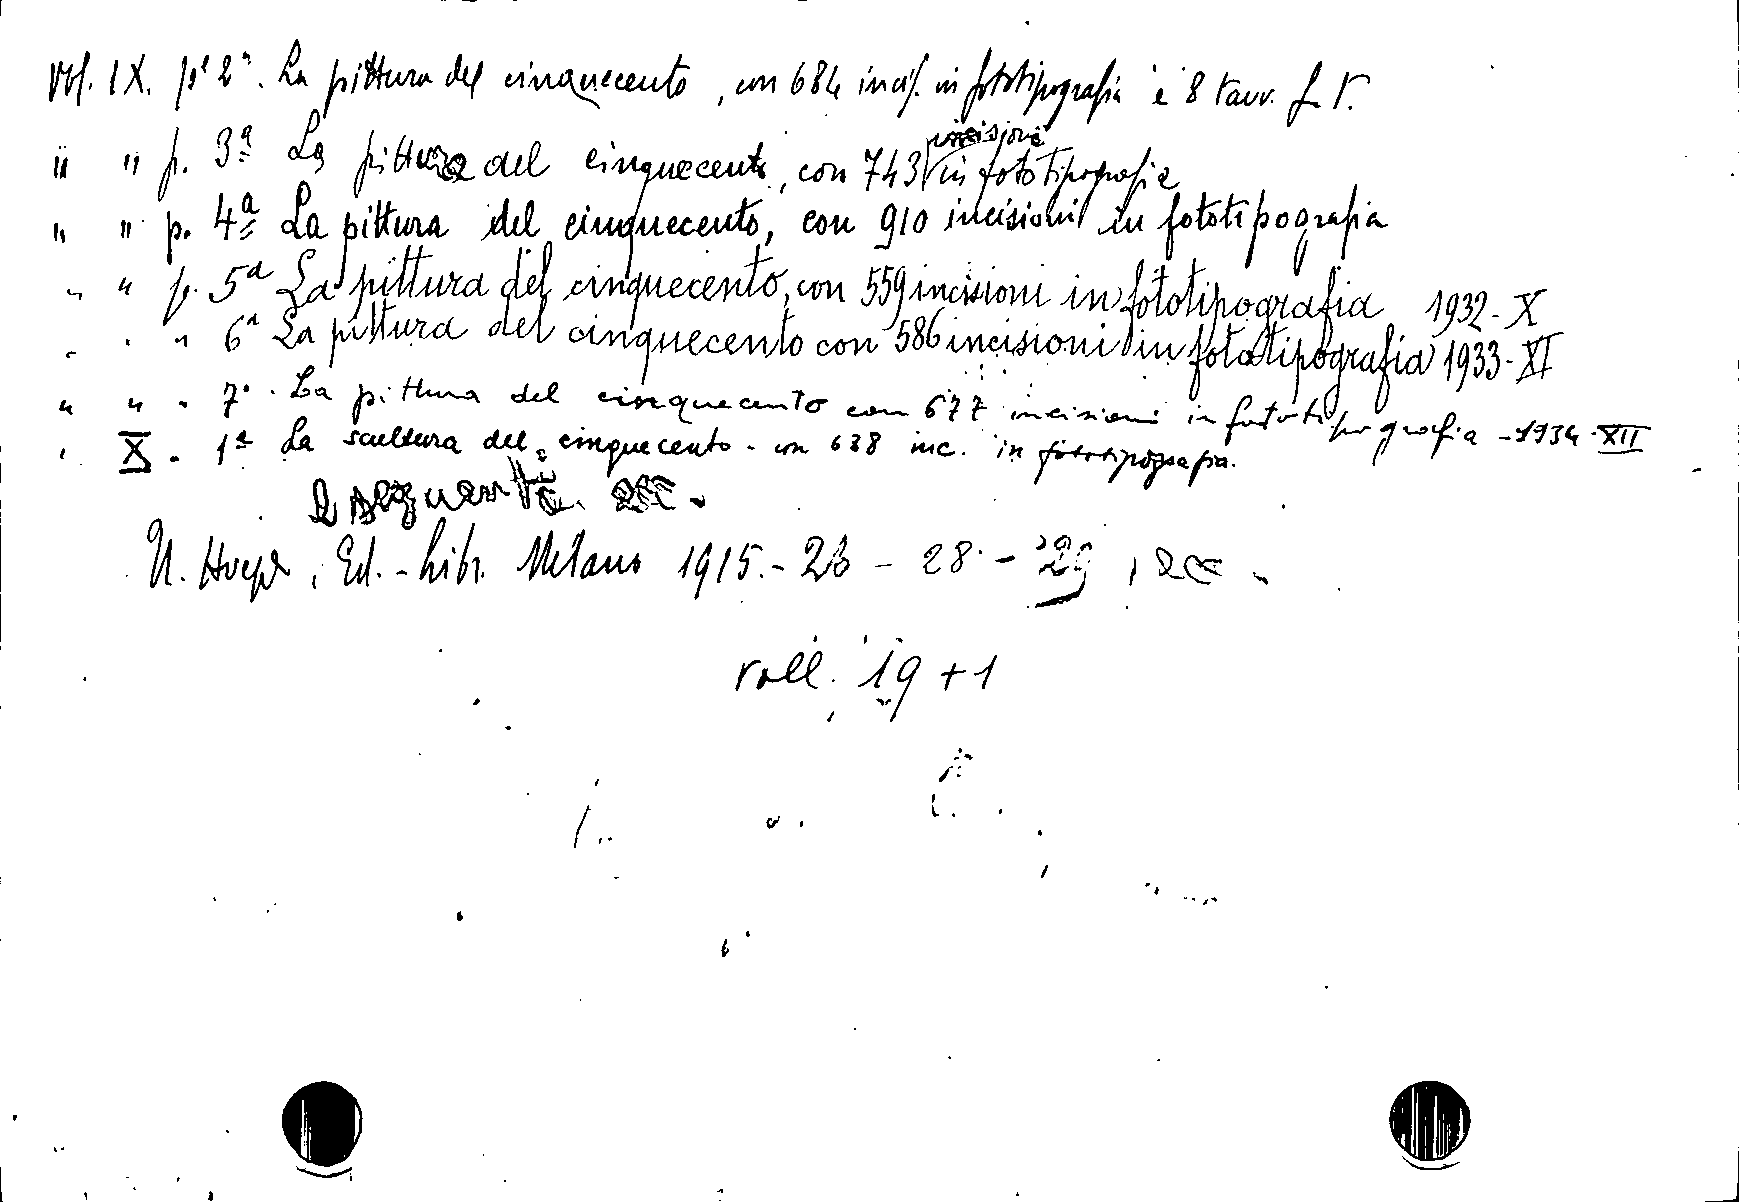 Vol. IX. pe 2ª. La pittura del cinquecento, con 684 incis. in fototipografia e 8 tavv. f. t.
" " p. 3ª La pittura del cinquecento, con 743 incisioni in fototipografia
" " p. 4ª La pittura del cinquecento, con 910 incisioni in fototipografia
" " p. 5ª La pittura del cinquecento, con 559 incisioni in fototipografia 1932-X
" " " 6ª La pittura del cinquecento con 586 incisioni in fototipografia 1933-XI
" " " 7ª. La pittura del cinquecento con 677 incisioni in fototipografia - 1934-XII
" X. 1ª La scultura del cinquecento - con 638 inc. in fototipografia.
U. Hoepli, Ed.-Libr. Milano 1915.-26 - 28 - 29,
coll. 19 + 1